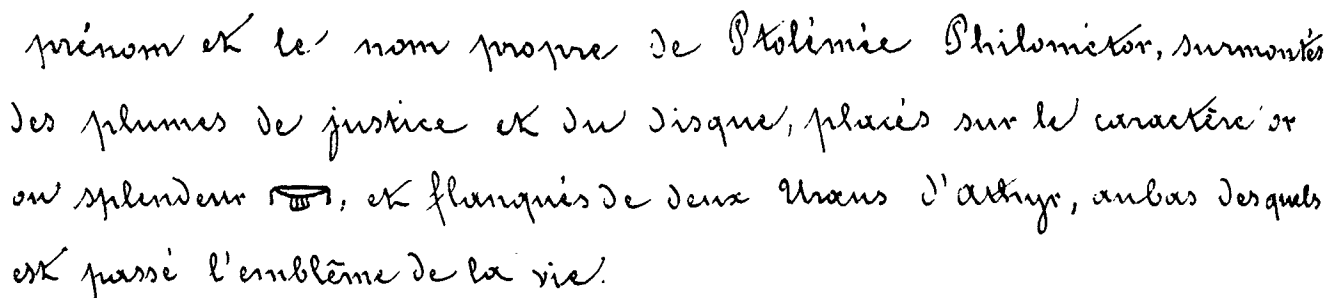 prénom et le nom propre de Ptolémée Philométor, surmontés
des plumes de justice et du disque, placés sur le caractère or
ou splendeur , et flanqués de deux Uraus d'Athyr, au bas desquels
est passé l'emblême de la vie.